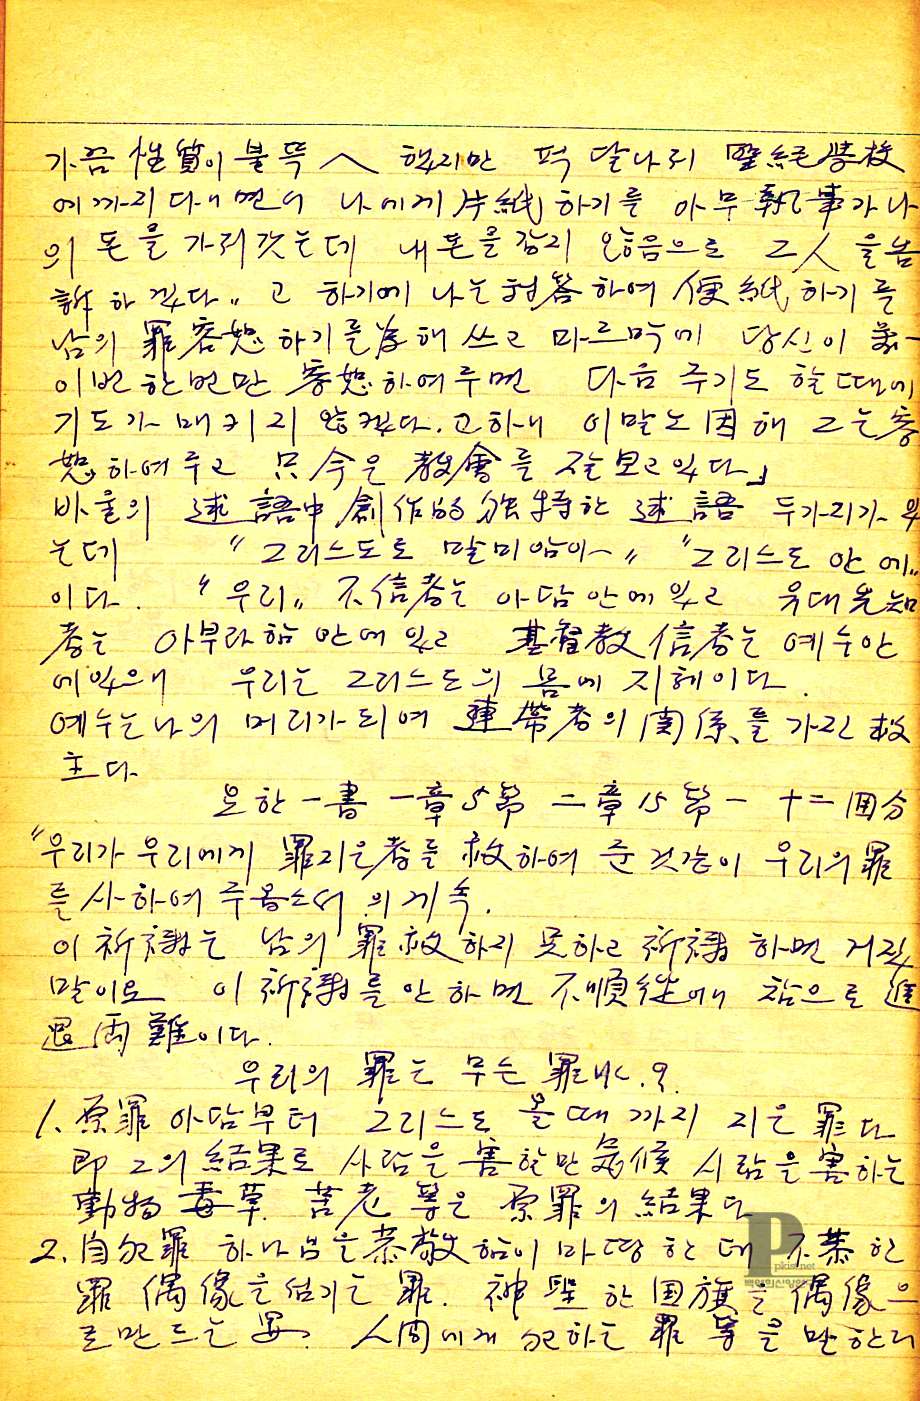 가끔 性質이 불뚝 하지만 퍽 달나서 聖経學校
에까지 다니면서 나에게 片紙하기를 아무 執事가 나
의 돈을 가저갓는데 내돈을 갑지 않음으로 그人을
하겠다" 고 하기에 나는 答하여 便紙하기를
남의 罪容恕하기를 爲해 쓰고 마르막에 당신이 萬一
이번 한번만 容恕하여 주면 다음 주기도 할때에
기도가 매키지 않겠다. 고하니 이말노 因해 그는 容
恕하여 주고 只今은 教會를 잘 보고 있다」
바울의 述語中 創作的 独特한 述語 두가지가 있
는데 "그리스도로 말미암아" "그리스도 안에"
이다. "우리" 不信者는 아담 안에 있고 유대 先知
者는 아부라함 안에 있고 基督教 信者는 예수안
에 있으며 우리는 그리스도의 몸에 지체이다.
예수는 나의 머리가 되여 連帶者의 関係를 가진 救
主다
요한一書 一章5節 二章15節 - 十二回分
"우리가 우리에게 罪지은 者를 赦하여 준것같이 우리의 罪
를 사하여 주옵소서 의 게속.
이 祈禱는 남의 罪 赦하지 못하고 祈禱하면 거짓
말이요 이 祈禱를 안하면 不順從이니 참으로 進
退両難이다.
우리의 罪는 무슨 罪냐.?
1. 原罪 아담부터 그리스도 올때까지 지은 罪다
即 그의 結果로 사람을 害할만 氣候 사람을 害하는
動物 毒草. 苦老 等은 原罪의 結果다
2. 自犯罪 하나님을 恭敬함이 마땅한대 不恭한
罪 偶像을 섬기는 罪. 神聖한 国旗를 偶像으
로 만드는 罪. 人間에게 犯하는 罪 等을 말한다
P
pkist.net